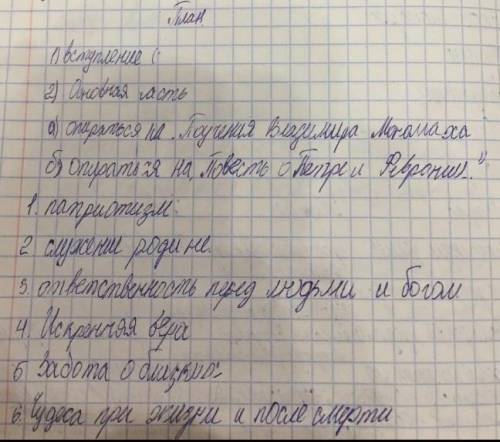 План
1) вступление (
2) Основная часть
а) опираться на „Поучения Владимира Мономаха
б) опираться на „Повесть о Петре и Февронии."
1. патриотизм.
2 служение родине.
3. ответственность перед людьми и богом
4. Искренняя вера
5 Забота о близких
6. Чудеса при жизни и после смерти